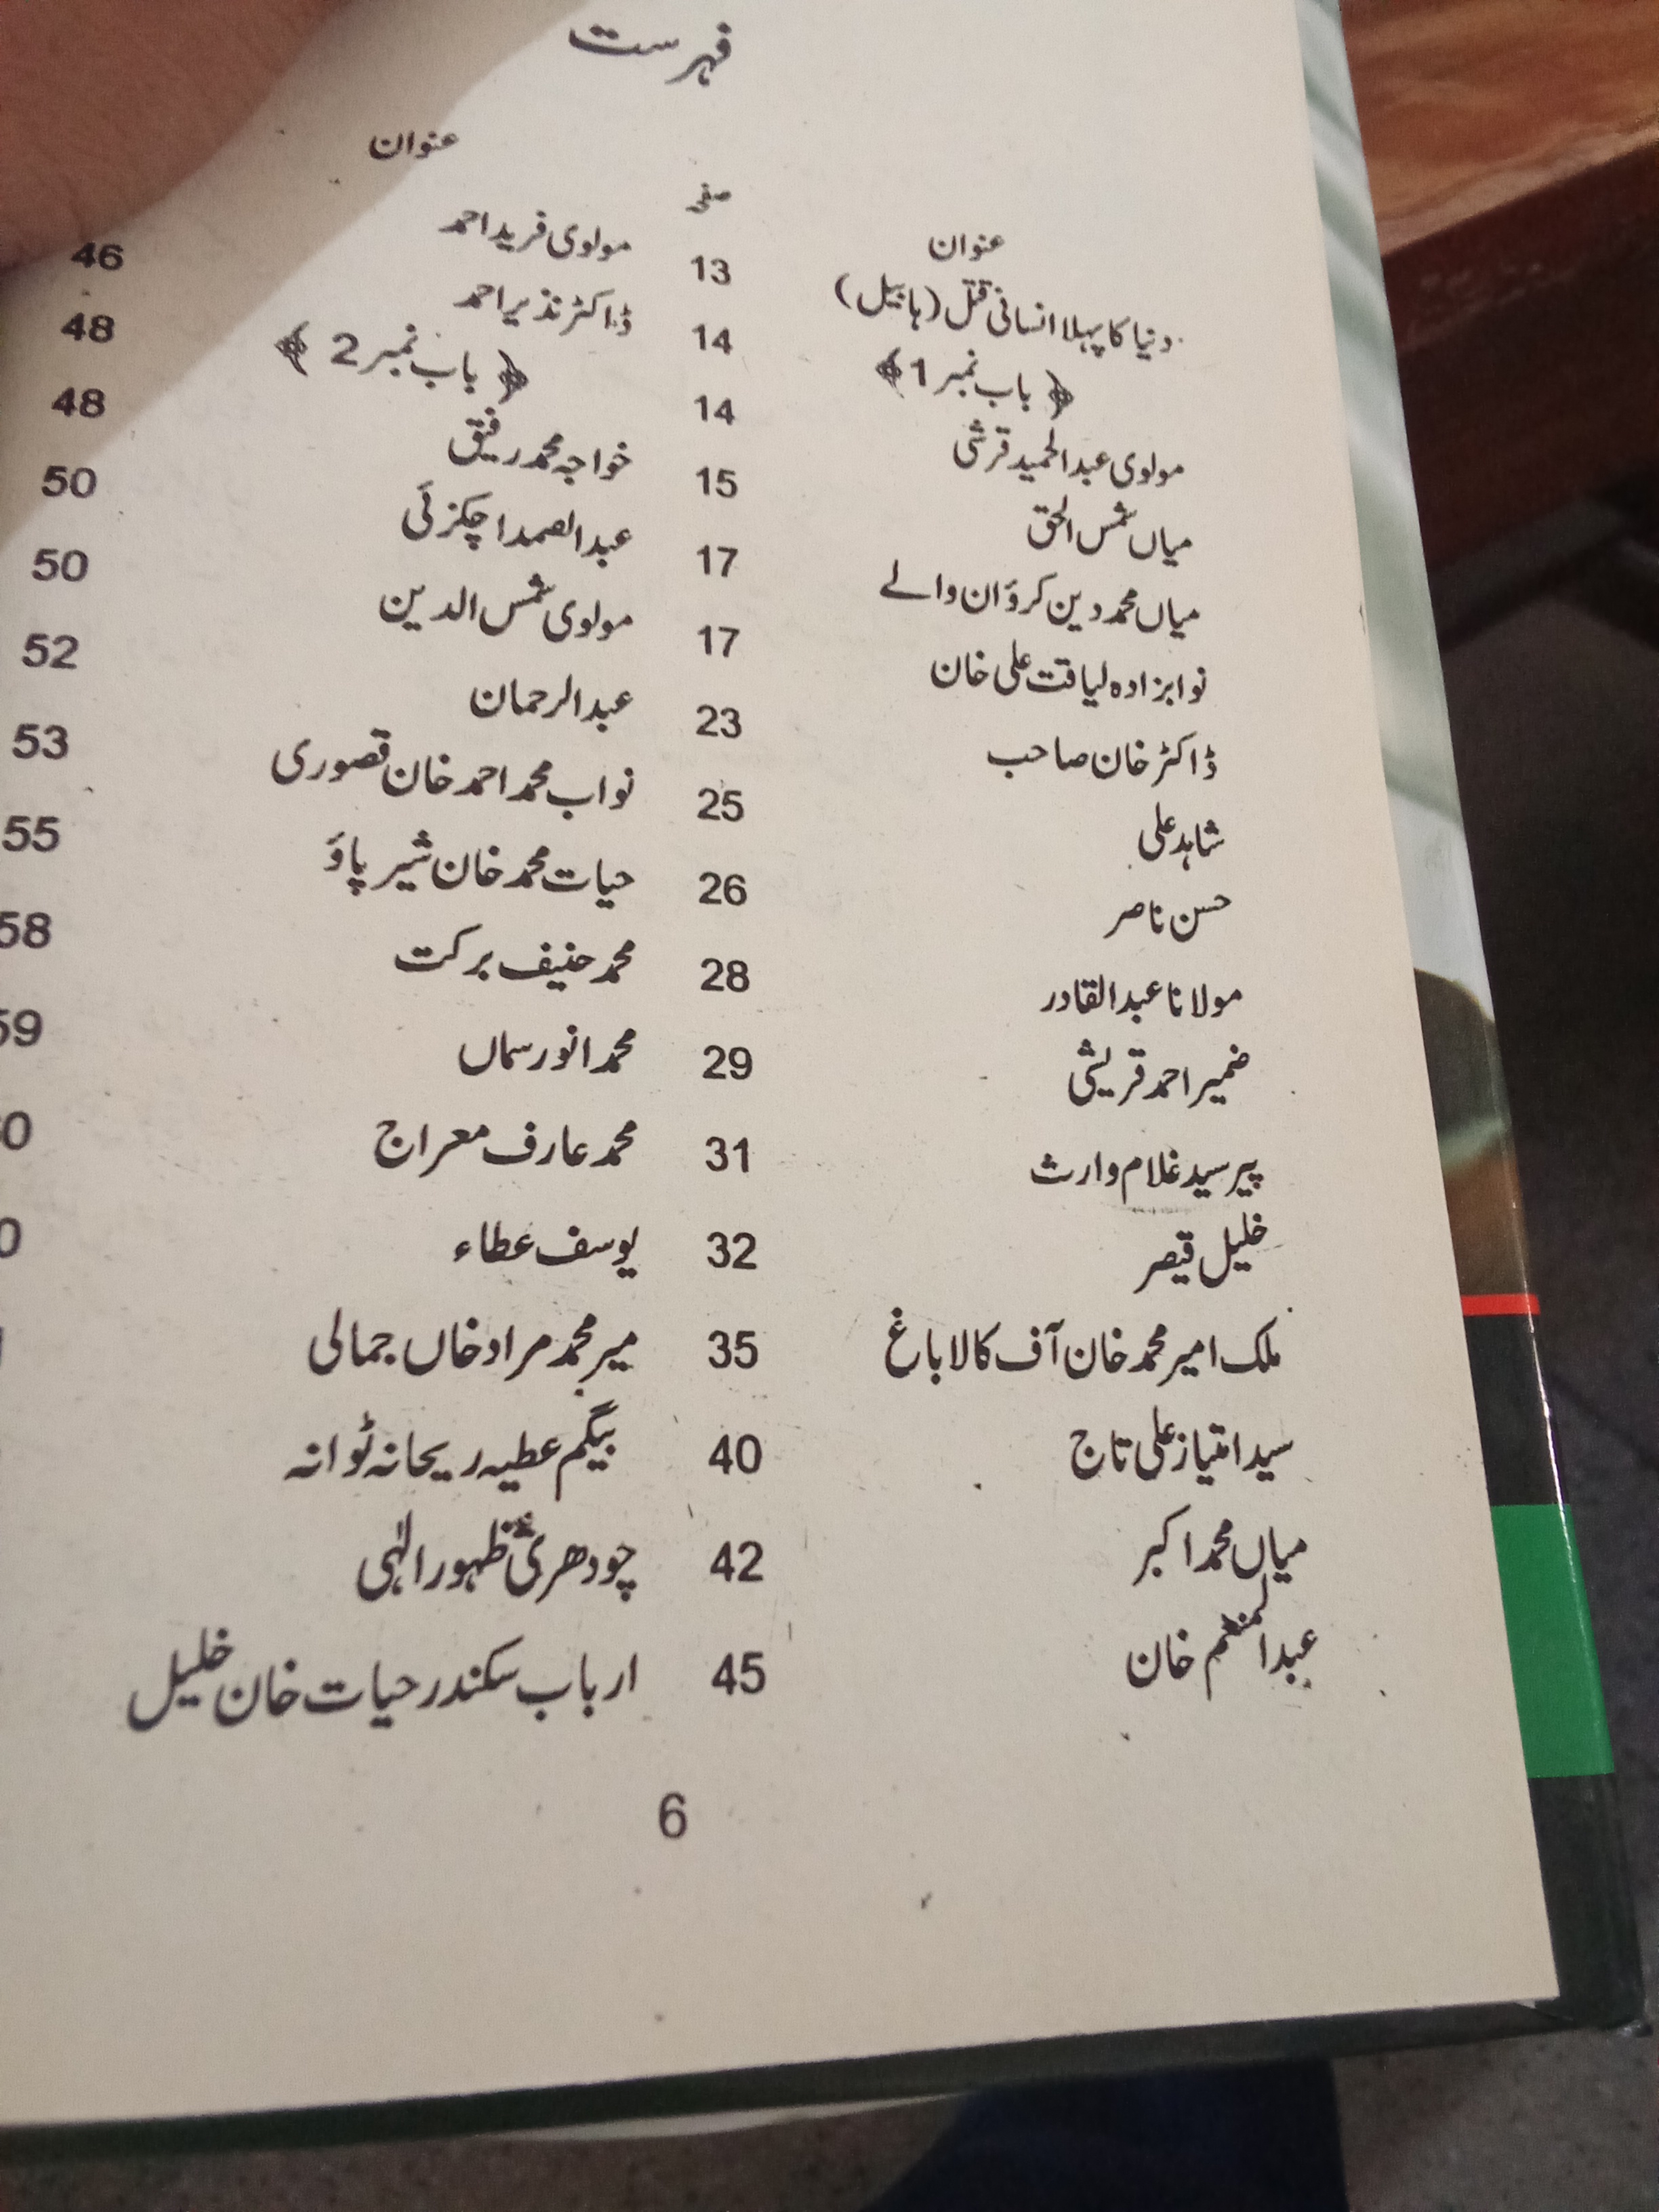 فہرست
عنوان
صفحہ
دنیا کا پہلا انسانی قتل (ہابیل) 13
﴿ باب نمبر 1 ﴾ 14
مولوی عبدالحمید قرشی 14
میاں شمس الحق 15
میاں محمد دین کروان والے 17
نوابزادہ لیاقت علی خان 17
ڈاکٹر خان صاحب 23
شاہد علی 25
حسن ناصر 26
مولانا عبدالقادر 28
ضمیر احمد قریشی 29
پیر سید غلام وارث 31
خلیل قیصر 32
ملک امیر محمد خان آف کالا باغ 35
سید امتیاز علی تاج 40
میاں محمد اکبر 42
عبدالمنعم خان 45
عنوان
مولوی فرید احمد 46
ڈاکٹر نذیر احمد 48
﴿ باب نمبر 2 ﴾ 48
خواجہ محمد رفیق 50
عبدالصمد اچکزئی 50
مولوی شمس الدین 52
عبدالرحمان 53
نواب محمد احمد خان قصوری 55
حیات محمد خان شیر پاؤ 58
محمد حنیف برکت 59
محمد انور سماں
محمد عارف معراج
یوسف عطاء
میر محمد مراد خاں جمالی
بیگم عطیہ ریحانہ ٹوانہ
چودھری ظہور الٰہی
ارباب سکندر حیات خان خلیل
6